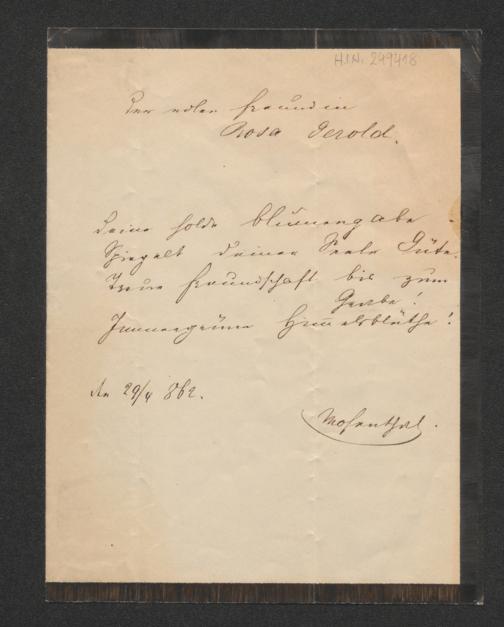 H.I.N. 249418
Der edlen Freundin
Rosa Gerold.
Deine holde Blumengabe
Spiegelt Deiner Seele Güte.
Treue Freundschaft bis zum
Grabe!
Immergrüne Himmelsblüthe!
29/4 862.
Mosenthal.